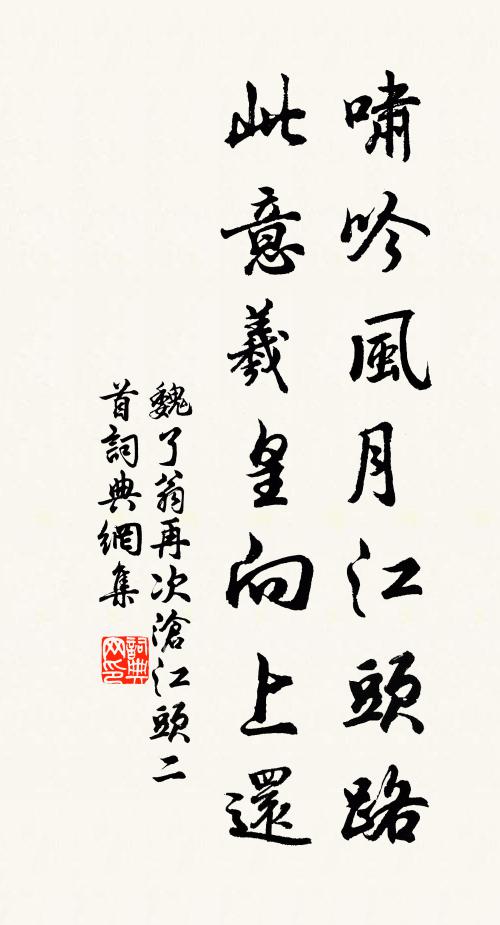 嘯吟風月江頭路
此意羲皇向上還
魏了翁再次滄江頭二
首詞典網集
詞典
网印